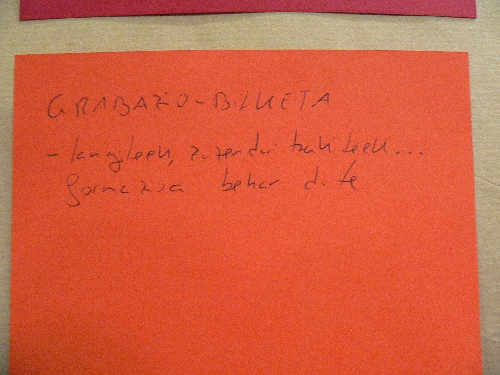 GRABAZIO-BILKETA
- langileek, zuzendaritzakideek...
formazioa behar dute